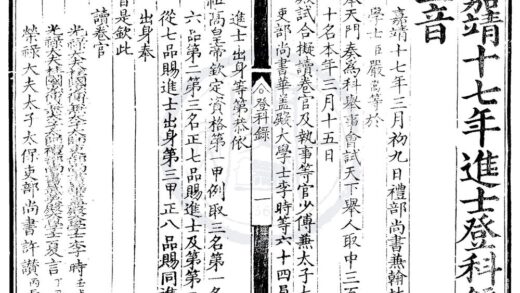 嘉靖十七年進士登科錄
玉音
嘉靖十七年三月初九日禮部尚書兼翰林
學士臣嚴嵩等於
奉天門奏為科舉事會試天下舉人取中三百
十名本年三月十五日
殿試合擬讀卷官及執事等官少傅兼太子太
吏部尚書華蓋殿大學士李時等六十四員
登科錄 一
進士出身等第恭依
祖高皇帝欽定資格第一甲例取三名第一名
六品第二第三名正七品賜進士及第第二
從七品賜進士出身第三甲正八品賜同進
出身奉
旨是欽此
讀卷官
光祿大夫柱國 學士李時
光祿大夫柱國 學士夏言
榮祿大夫太子太保吏部尚書許讚